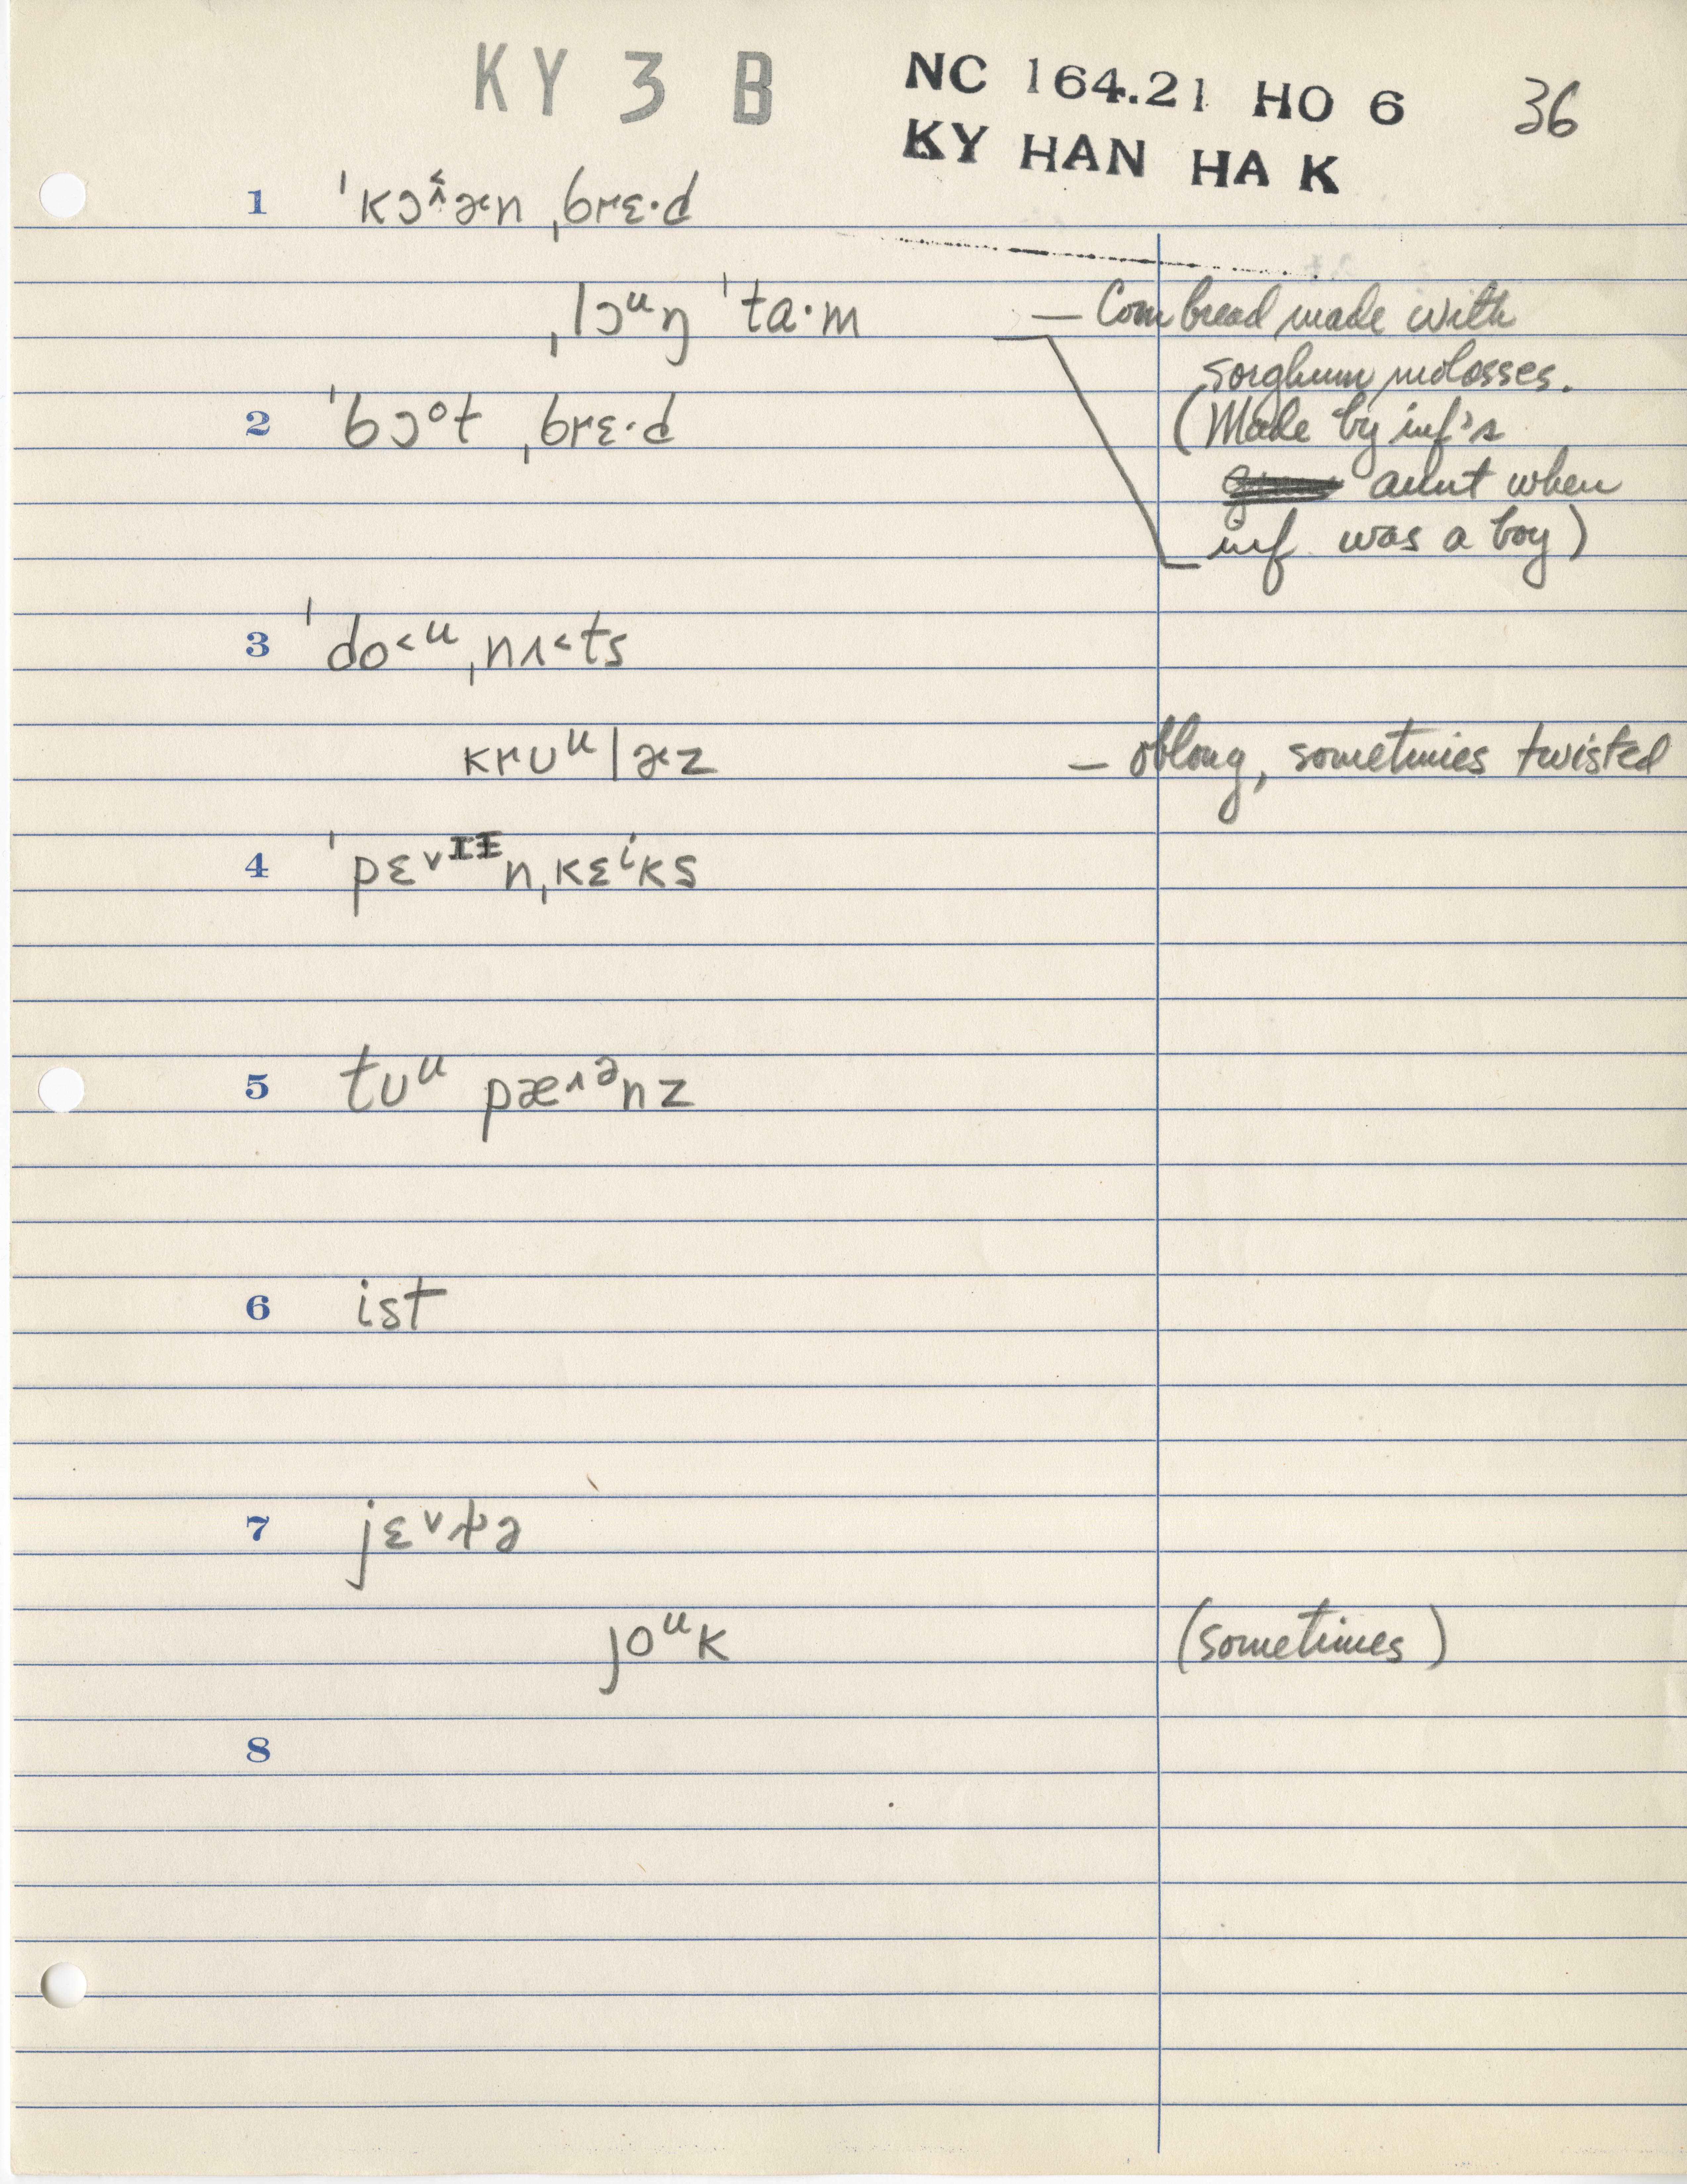 KY 3 B
NC 164.21 HO 6 36
KY HAN HA K
1 ˈkɔ˂˄ɚn ˌbrɛ·d
ˌlɔᵘŋ ˈta·m — Corn bread made with
sorghum molosses.
2 ˈbɔᵒt ˌbrɛ·d (Made by inf's
aunt when
inf. was a boy)
3 ˈdo˂ᵘ ˌnʌ˂ts
krʊᵘlɚz — oblong, sometimes twisted
4 ˈpɛ˅ n ˌkɛⁱks
5 tʊᵘ pæ˄ᵊnz
6 ist
7 jɛ˅ə
joᵘk (sometimes)
8